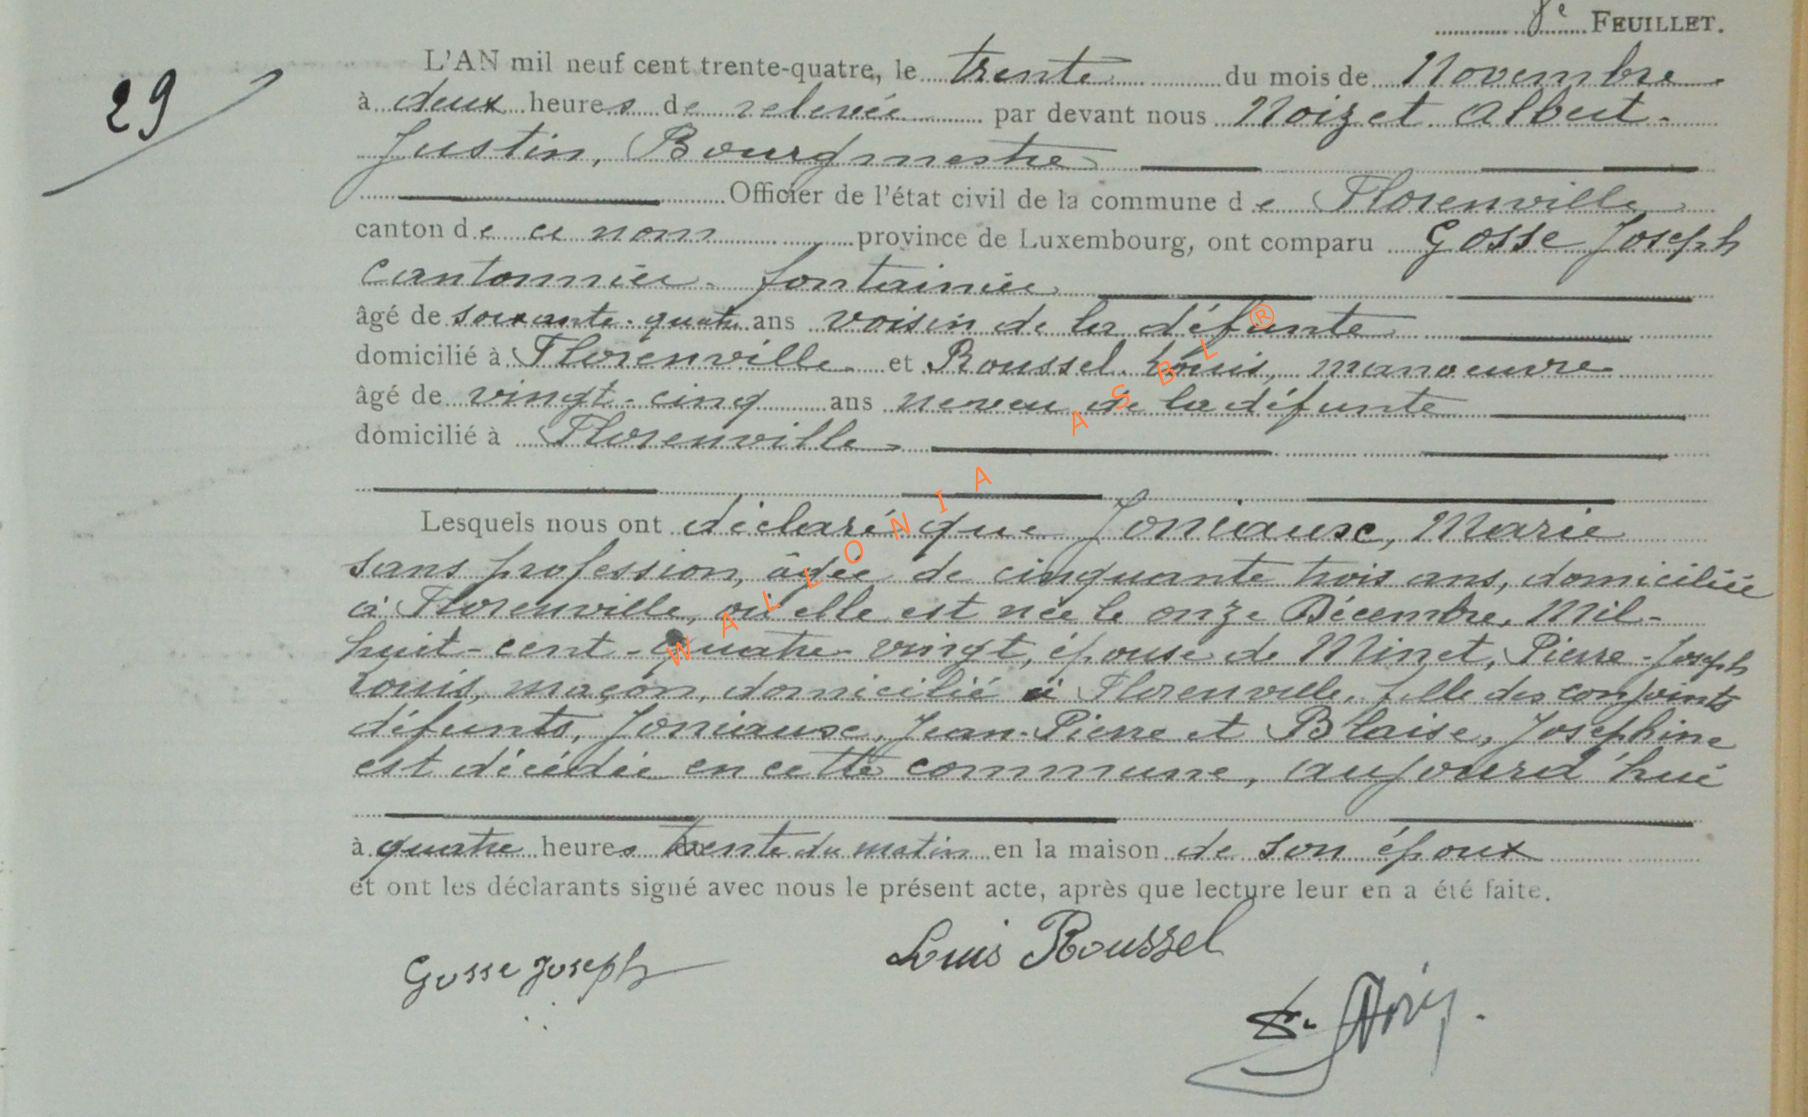 8e FEUILLET.
29
L'AN mil neuf cent trente-quatre, le trente du mois de Novembre
à deux heures de relevée par devant nous Noizet Albert-
Justin, Bourgmestre
Officier de l'état civil de la commune de Florenville
canton de ce nom province de Luxembourg, ont comparu Gosse Joseph
cantonnier-fontainier
âgé de soixante-quatre ans voisin de la défunte
domicilié à Florenville et Roussel Louis, manoeuvre
âgé de vingt-cinq ans neveu de la défunte
domicilié à Florenville
Lesquels nous ont déclaré que Joniaux, Marie
sans profession, âgée de cinquante trois ans, domiciliée
à Florenville, où elle est née le onze Décembre, Mil-
huit-cent-quatre-vingt, épouse de Minet, Pierre-Joseph
Louis, maçon, domicilié à Florenville, fille des conjoints
défunts, Joniaux, Jean-Pierre et Blaise, Joséphine
est décédée en cette commune, aujourd'hui
à quatre heures trente du matin en la maison de son époux
et ont les déclarants signé avec nous le présent acte, après que lecture leur en a été faite.
Gosse Joseph
Louis Roussel
WALLONIA ASBL ®